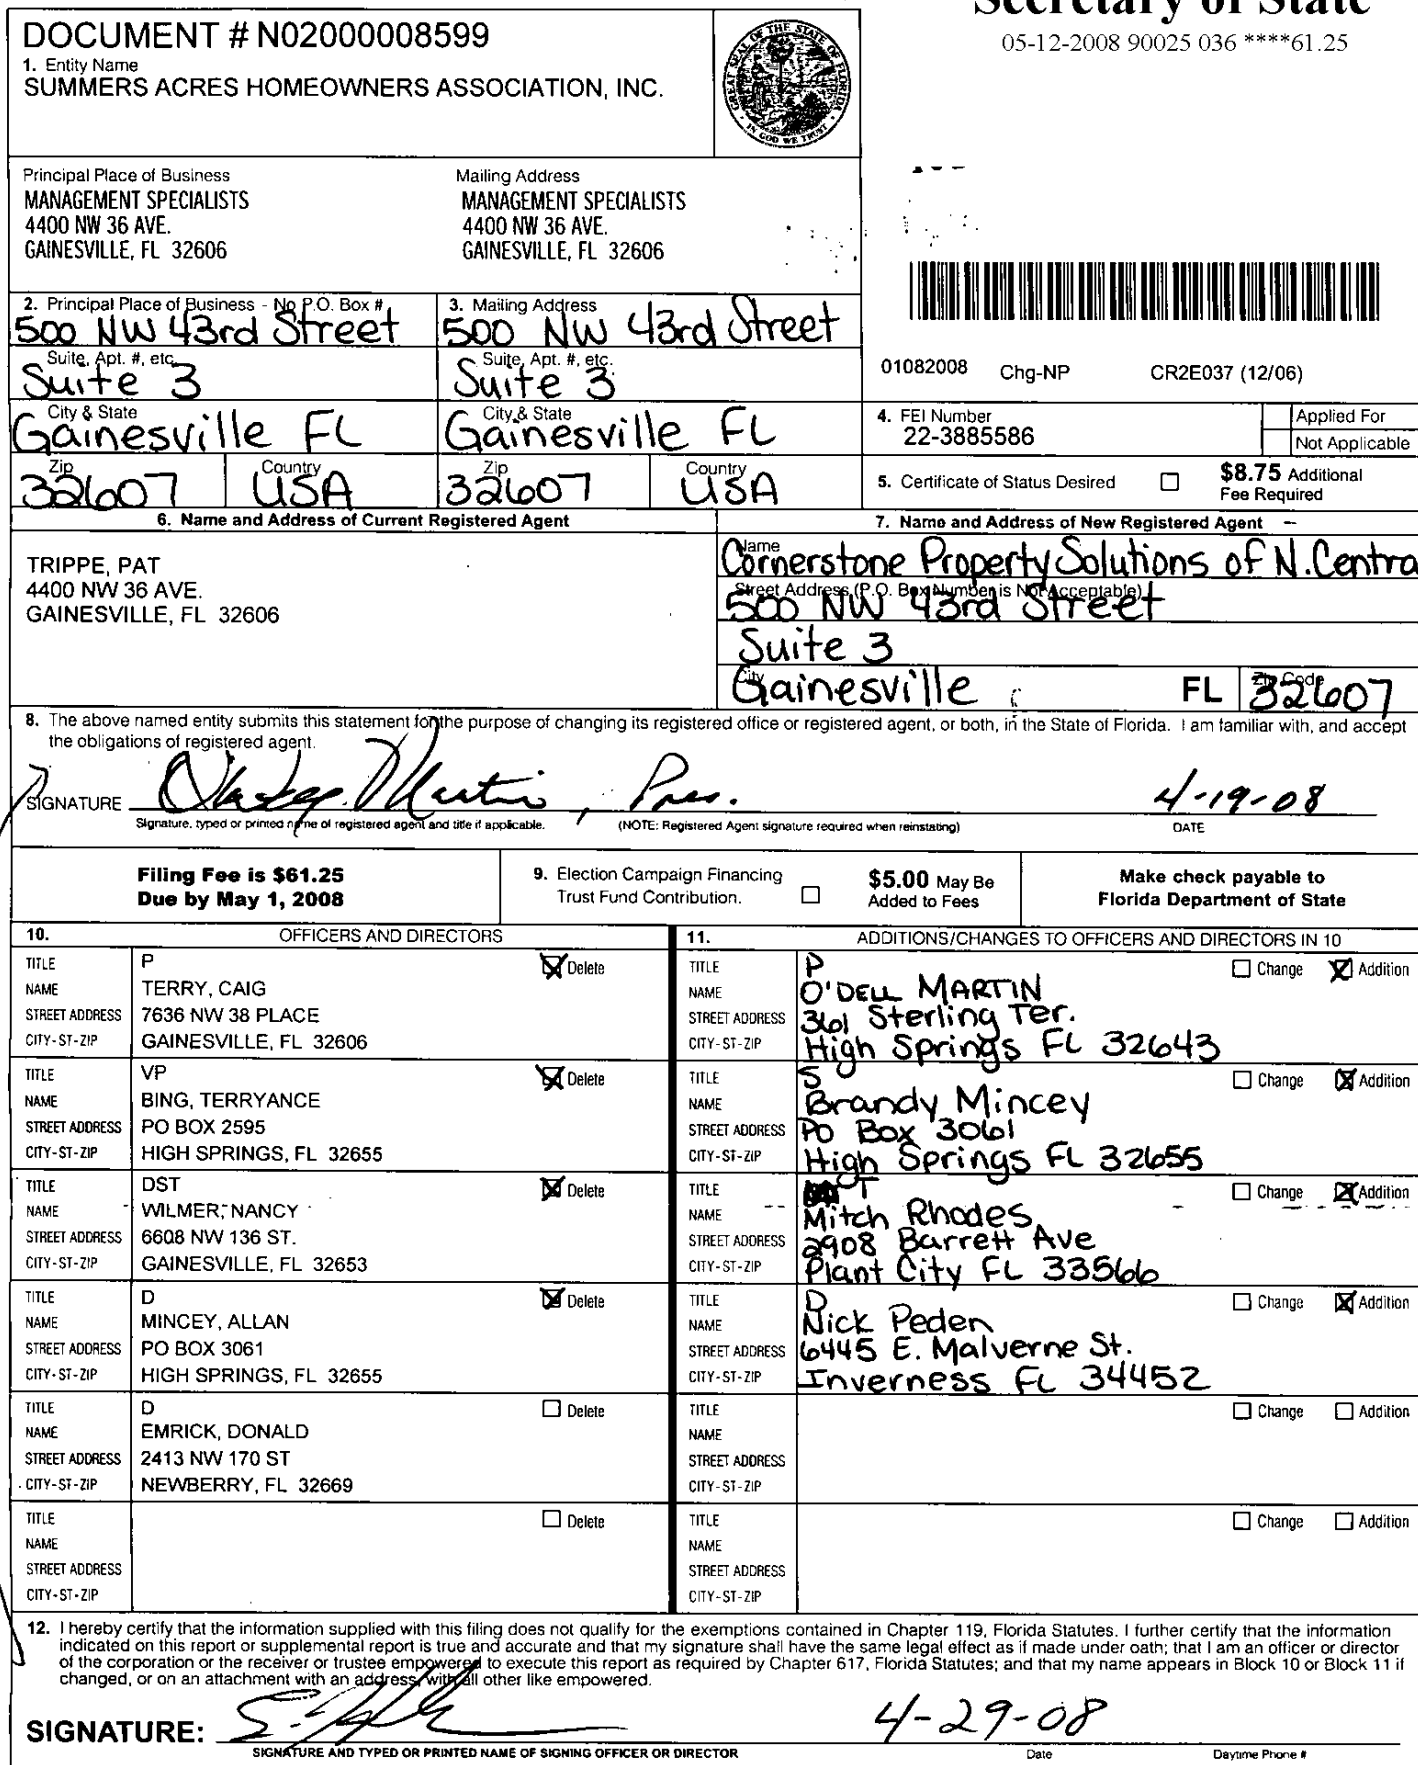 Secretary of State
05-12-2008 90025 036 ****61.25
DOCUMENT # N02000008599
1. Entity Name
SUMMERS ACRES HOMEOWNERS ASSOCIATION, INC.
GREAT SEAL OF THE STATE OF FLORIDA
IN GOD WE TRUST
Principal Place of Business
MANAGEMENT SPECIALISTS
4400 NW 36 AVE.
GAINESVILLE, FL 32606
Mailing Address
MANAGEMENT SPECIALISTS
4400 NW 36 AVE.
GAINESVILLE, FL 32606
2. Principal Place of Business - No P.O. Box #
500 NW 43rd Street
3. Mailing Address
500 NW 43rd Street
Suite, Apt. #, etc.
Suite 3
Suite, Apt. #, etc.
Suite 3
City & State
Gainesville FL
City & State
Gainesville FL
Zip
32607
Country
USA
Zip
32607
Country
USA
01082008 Chg-NP CR2E037 (12/06)
4. FEI Number
22-3885586
Applied For
Not Applicable
5. Certificate of Status Desired
$8.75 Additional
Fee Required
6. Name and Address of Current Registered Agent
TRIPPE, PAT
4400 NW 36 AVE.
GAINESVILLE, FL 32606
7. Name and Address of New Registered Agent
Name
Cornerstone Property Solutions of N. Centra
Street Address (P.O. Box Number is Not Acceptable)
500 NW 43rd Street
Suite 3
City
Gainesville
FL
Zip Code
32607
8. The above named entity submits this statement for the purpose of changing its registered office or registered agent, or both, in the State of Florida. I am familiar with, and accept
the obligations of registered agent.
SIGNATURE
Martin, Pres.
4-19-08
Signature, typed or printed name of registered agent and title if applicable.
(NOTE: Registered Agent signature required when reinstating)
DATE
Filing Fee is $61.25
Due by May 1, 2008
9. Election Campaign Financing
Trust Fund Contribution.
$5.00 May Be
Added to Fees
Make check payable to
Florida Department of State
10. OFFICERS AND DIRECTORS
TITLE P Delete
NAME TERRY, CAIG
STREET ADDRESS 7636 NW 38 PLACE
CITY-ST-ZIP GAINESVILLE, FL 32606
TITLE VP Delete
NAME BING, TERRYANCE
STREET ADDRESS PO BOX 2595
CITY-ST-ZIP HIGH SPRINGS, FL 32655
TITLE DST Delete
NAME WILMER, NANCY
STREET ADDRESS 6608 NW 136 ST.
CITY-ST-ZIP GAINESVILLE, FL 32653
TITLE D Delete
NAME MINCEY, ALLAN
STREET ADDRESS PO BOX 3061
CITY-ST-ZIP HIGH SPRINGS, FL 32655
TITLE D Delete
NAME EMRICK, DONALD
STREET ADDRESS 2413 NW 170 ST
CITY-ST-ZIP NEWBERRY, FL 32669
TITLE Delete
NAME
STREET ADDRESS
CITY-ST-ZIP
11. ADDITIONS/CHANGES TO OFFICERS AND DIRECTORS IN 10
TITLE P Change Addition
NAME O'DELL MARTIN
STREET ADDRESS 361 Sterling Ter.
CITY-ST-ZIP High Springs FL 32643
TITLE S Change Addition
NAME Brandy Mincey
STREET ADDRESS PO Box 3061
CITY-ST-ZIP High Springs FL 32655
TITLE T Change Addition
NAME Mitch Rhodes
STREET ADDRESS 2908 Barrett Ave
CITY-ST-ZIP Plant City FL 33566
TITLE D Change Addition
NAME Nick Peden
STREET ADDRESS 6445 E. Malverne St.
CITY-ST-ZIP Inverness FL 34452
TITLE Change Addition
NAME
STREET ADDRESS
CITY-ST-ZIP
TITLE Change Addition
NAME
STREET ADDRESS
CITY-ST-ZIP
12. I hereby certify that the information supplied with this filing does not qualify for the exemptions contained in Chapter 119, Florida Statutes. I further certify that the information
indicated on this report or supplemental report is true and accurate and that my signature shall have the same legal effect as if made under oath; that I am an officer or director
of the corporation or the receiver or trustee empowered to execute this report as required by Chapter 617, Florida Statutes; and that my name appears in Block 10 or Block 11 if
changed, or on an attachment with an address, with all other like empowered.
SIGNATURE:
4-29-08
SIGNATURE AND TYPED OR PRINTED NAME OF SIGNING OFFICER OR DIRECTOR
Date
Daytime Phone #